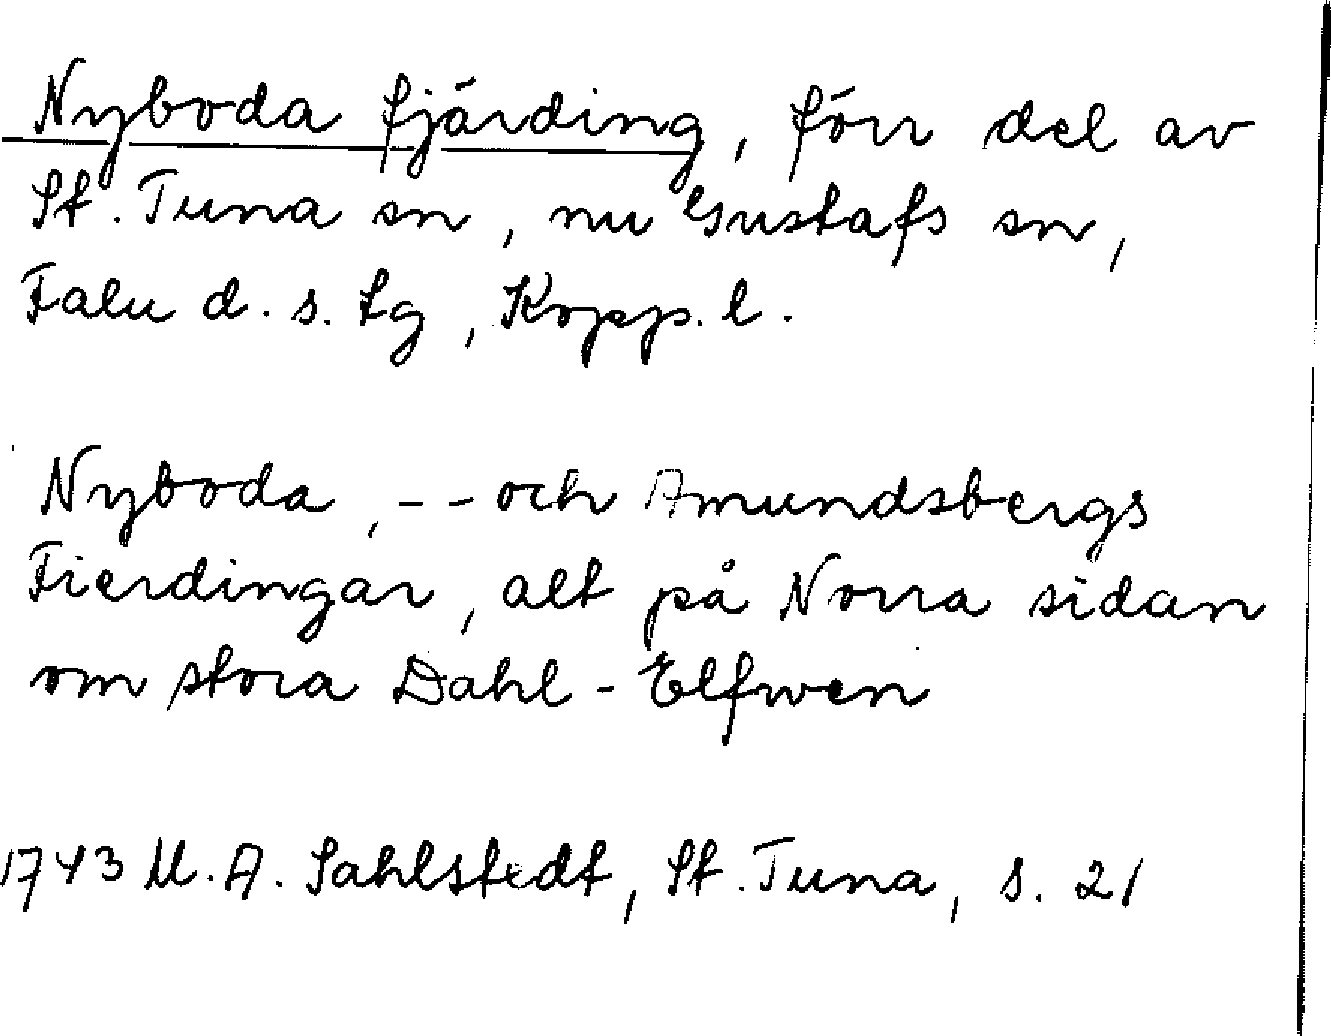 Nyboda fjärding, förr del av
St. Tuna sn, nu Gustafs sn,
Falu d. s. tg, Kopp. l.
Nyboda, -- och Amundsbergs
Fierdingar, alt på Norra sidan
om stora Dahl-Elfwen
1743 M. A. Sahlstedt, St. Tuna, s. 21